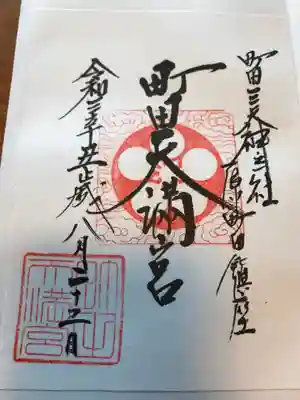 町田三天神之社
原町田鎮座
町田天満宮
令和三年辛丑歳 八月二十二日